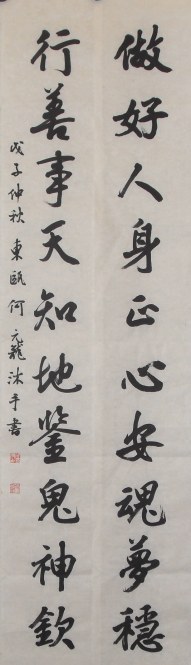 做好人身正心安魂夢穩
行善事天知地鑒鬼神欽
戊子仲秋東甌何元龍沐手書